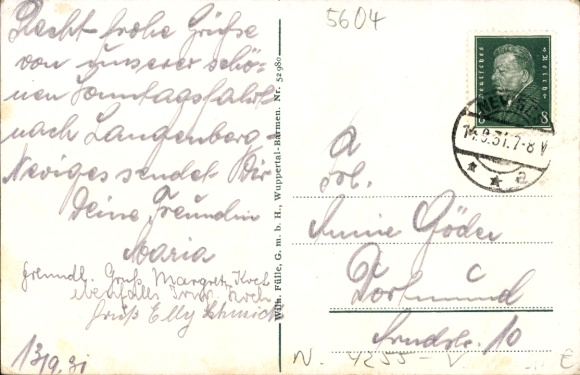 Recht frohe Grüße
von unserer schö-
nen Sonntagsfahrt
nach Langenberg-
Neviges sendet Dir
Deine Freundin
Maria
freundl. Gruß Margret
ebenfalls
Gruß Elly Schmidt
13/9.31
Wilh. Fülle, G. m. b. H., Wuppertal-Barmen. Nr. 52980
5604
Deutsches Reich
8 8
NEVIGES
14.9.31.7-8V
* * a
Frl.
Anne Göder
Dortmund
Arndtstr. 10
N. 4255 - V
E